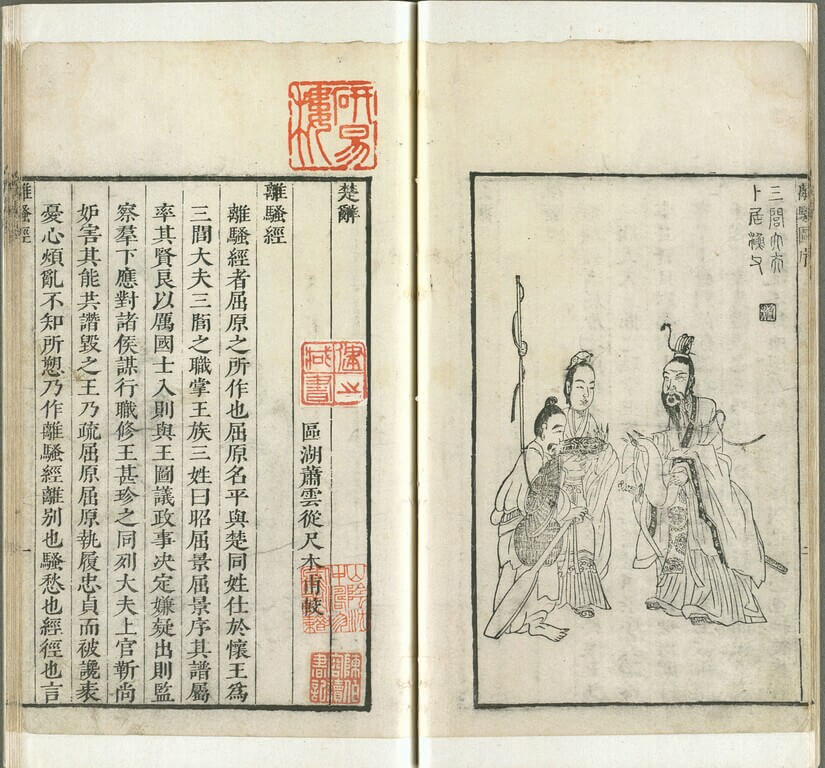 離騷圖序
二
三閭大夫
卜居漁父
研易樓
楚辭
區湖蕭雲從尺木甫較
離騷經
離騷經者屈原之所作也屈原名平與楚同姓仕於懷王爲
三閭大夫三閭之職掌王族三姓曰昭屈景屈景序其譜屬
率其賢良以厲國士入則與王圖議政事决定嫌疑出則監
察羣下應對諸侯謀行職修王甚珍之同列大夫上官靳尚
妬害其能共譖毀之王乃疏屈原屈原執履忠貞而被讒衺
憂心煩亂不知所愬乃作離騷經離别也騷愁也經徑也言
離騷經
一